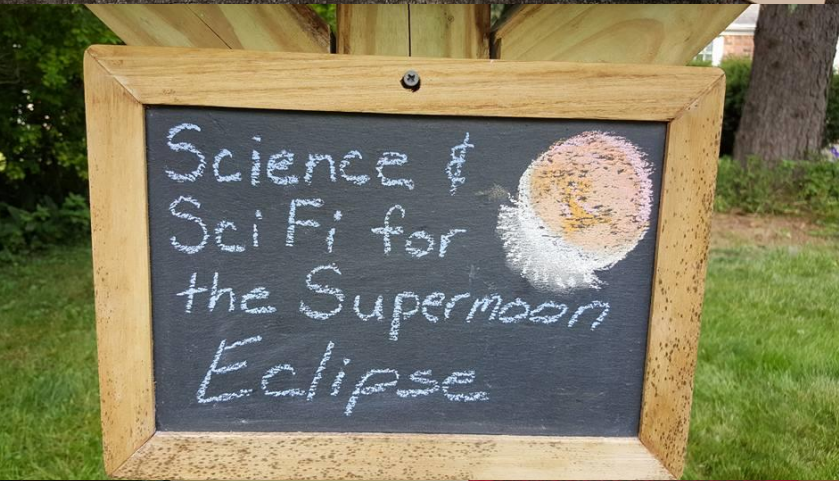 Science &
Sci Fi for
the Supermoon
Eclipse